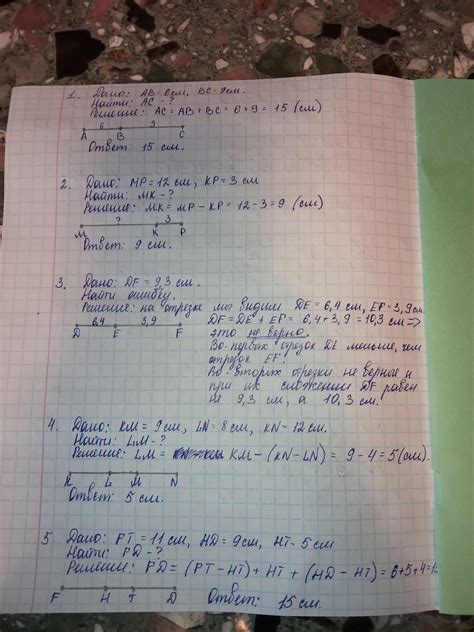 1. Дано: AB = 6 см, BC = 9 см.
Найти: AC - ?
Решение: AC = AB + BC = 6 + 9 = 15 (см)
6 9
A B C
Ответ: 15 см.
2. Дано: MP = 12 см, KP = 3 см
Найти: MK - ?
Решение: MK = MP - KP = 12 - 3 = 9 (см)
? 3
M K P
Ответ: 9 см.
3. Дано: DF = 9,3 см.
Найти ошибку.
Решение: на отрезке мы видим DE = 6,4 см, EF = 3,9 см.
DF = DE + EF = 6,4 + 3,9 = 10,3 см =>
6,4 3,9
D E F
это не верно.
Во-первых отрезок DE меньше, чем
отрезок EF.
Во-вторых отрезки не верные и
при их сложении DF равен
не 9,3 см, а 10,3 см.
4. Дано: KM = 9 см, LN = 8 см, KN = 12 см.
Найти: LM - ?
Решение: LM = KM - (KN - LN) = 9 - 4 = 5 (см).
K L M N
Ответ: 5 см.
5. Дано: FT = 11 см, HD = 9 см, HT = 5 см
Найти: FD - ?
Решение: FD = (FT - HT) + HT + (HD - HT) = 6 + 5 + 4 =
F H T D
Ответ: 15 см.